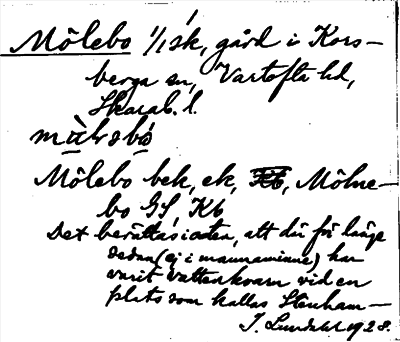 Mölebo 1/1 sk, gård i Kors-
berga sn, Vartofta hd,
Skarab. l.
Mölebo bek, ek, Kb, Mölne-
bo GS, Kb
Det berättas i orten, att där för länge
sedan (ej i mannaminne) har
varit vattenkvarn vid en
plats som kallas Stenham-
J. Lundahl 1928.